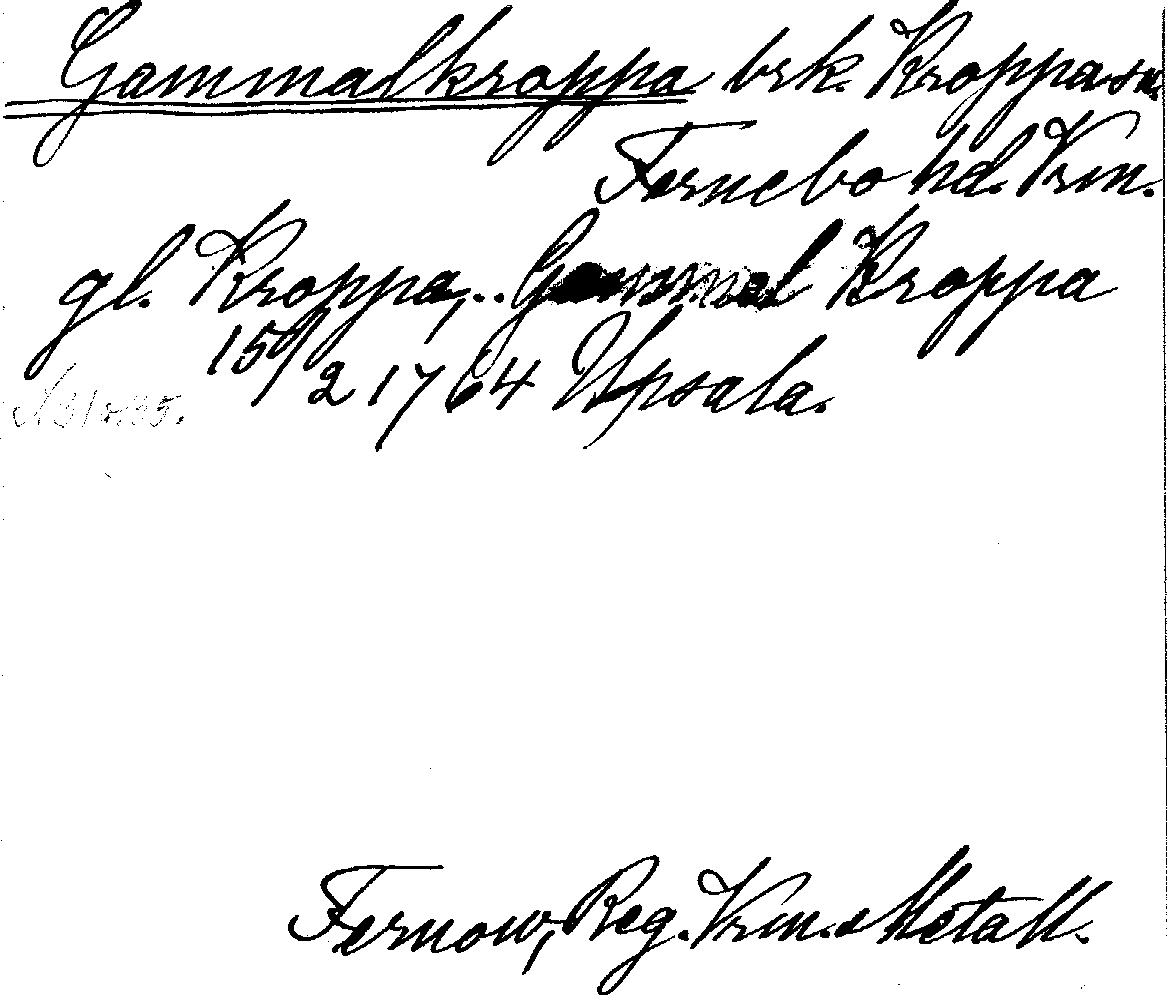 Gammalkroppa brk. Kroppa sn.
Fernebo hd. Vrm.
gl. Kroppa, .. Gammal Kroppa
159/2 1764 Upsala.
Fernow, Reg. Vrm. Metall.